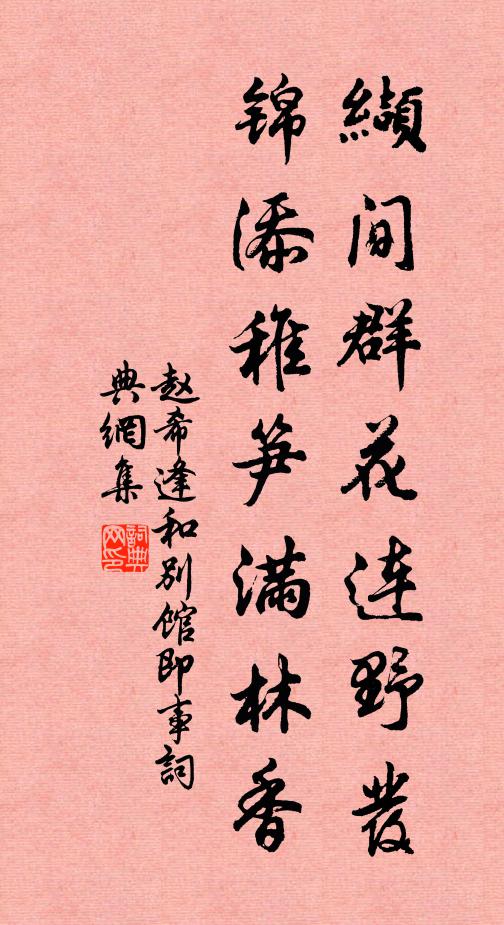 纈间群花连野发
锦添稚笋满林香
赵希逢和别馆即事词
典網集
詞典網印